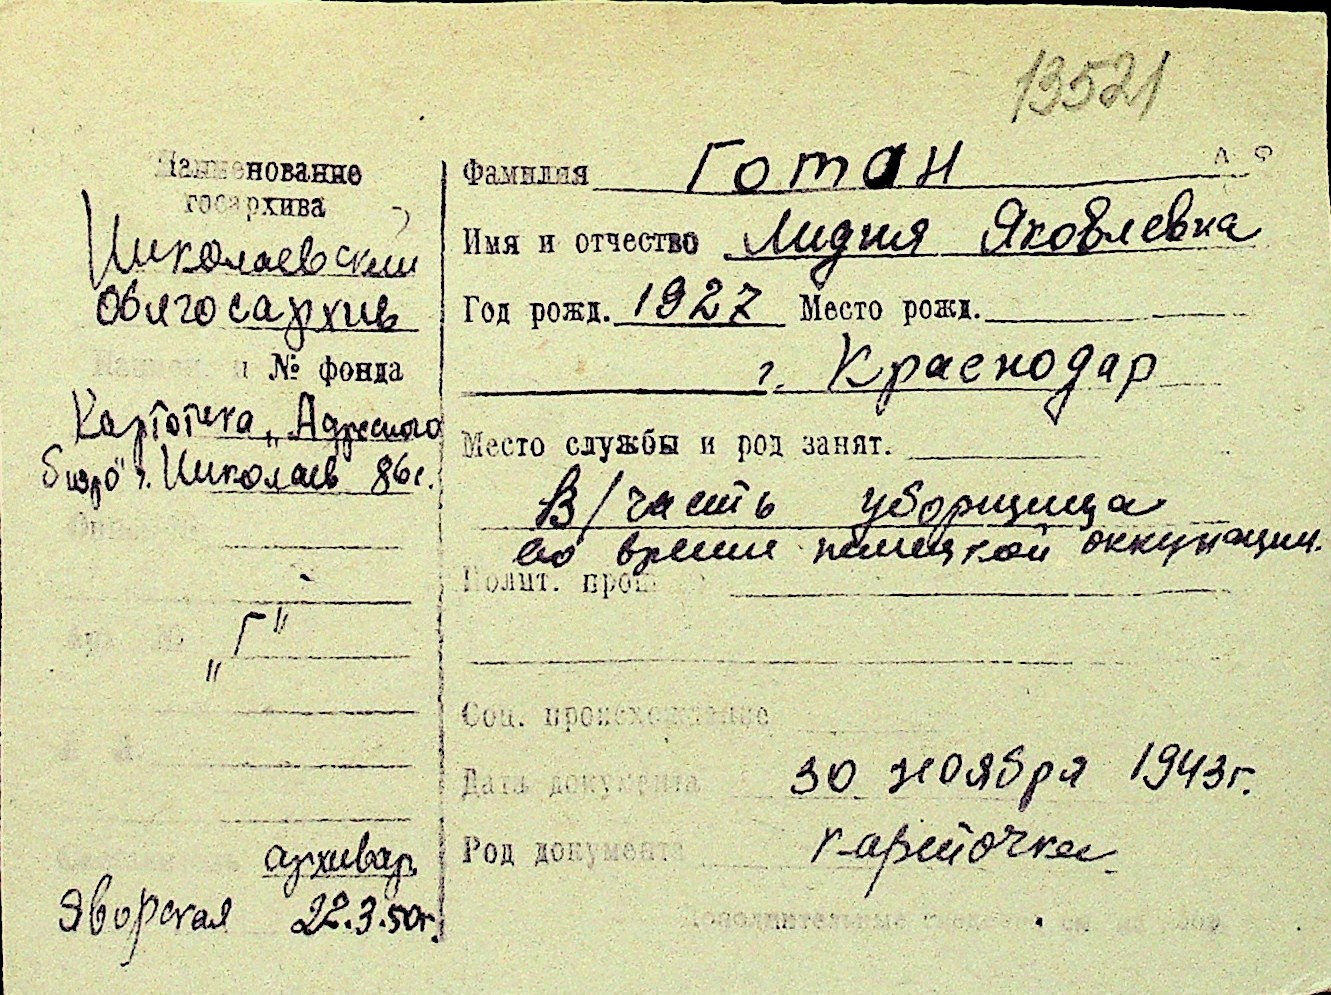 13521
Наименование
госархива
Николаевский
облгосархив
Наимен. и № фонда
Картотека „Адресного
бюро" г. Николаев 86 г.
„Г"
архивар
Яворская 22.3.50г.
Фамилия Готан
Имя и отчество Лидия Яковлевна
Год рожд. 1927 Место рожд.
г. Краснодар
Место службы и род занят.
В/часть уборщица
во время немецкой оккупации.
Полит. прош
Соц. происхождение
Дата документа 30 ноября 1943г.
Род документа карточка
Дополнительные сведения см. на обор